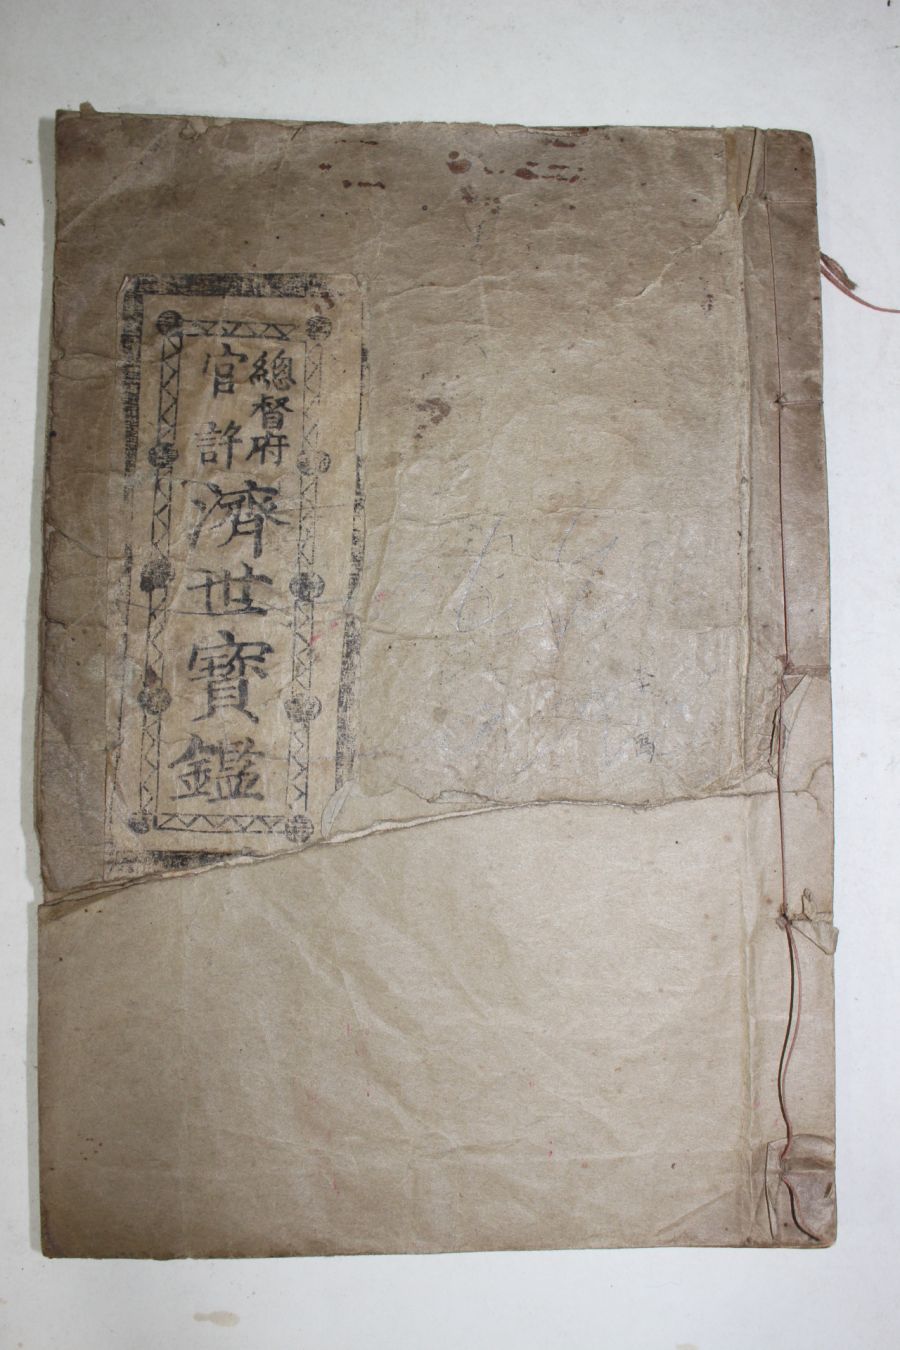 總督府
官許
濟世寶鑑